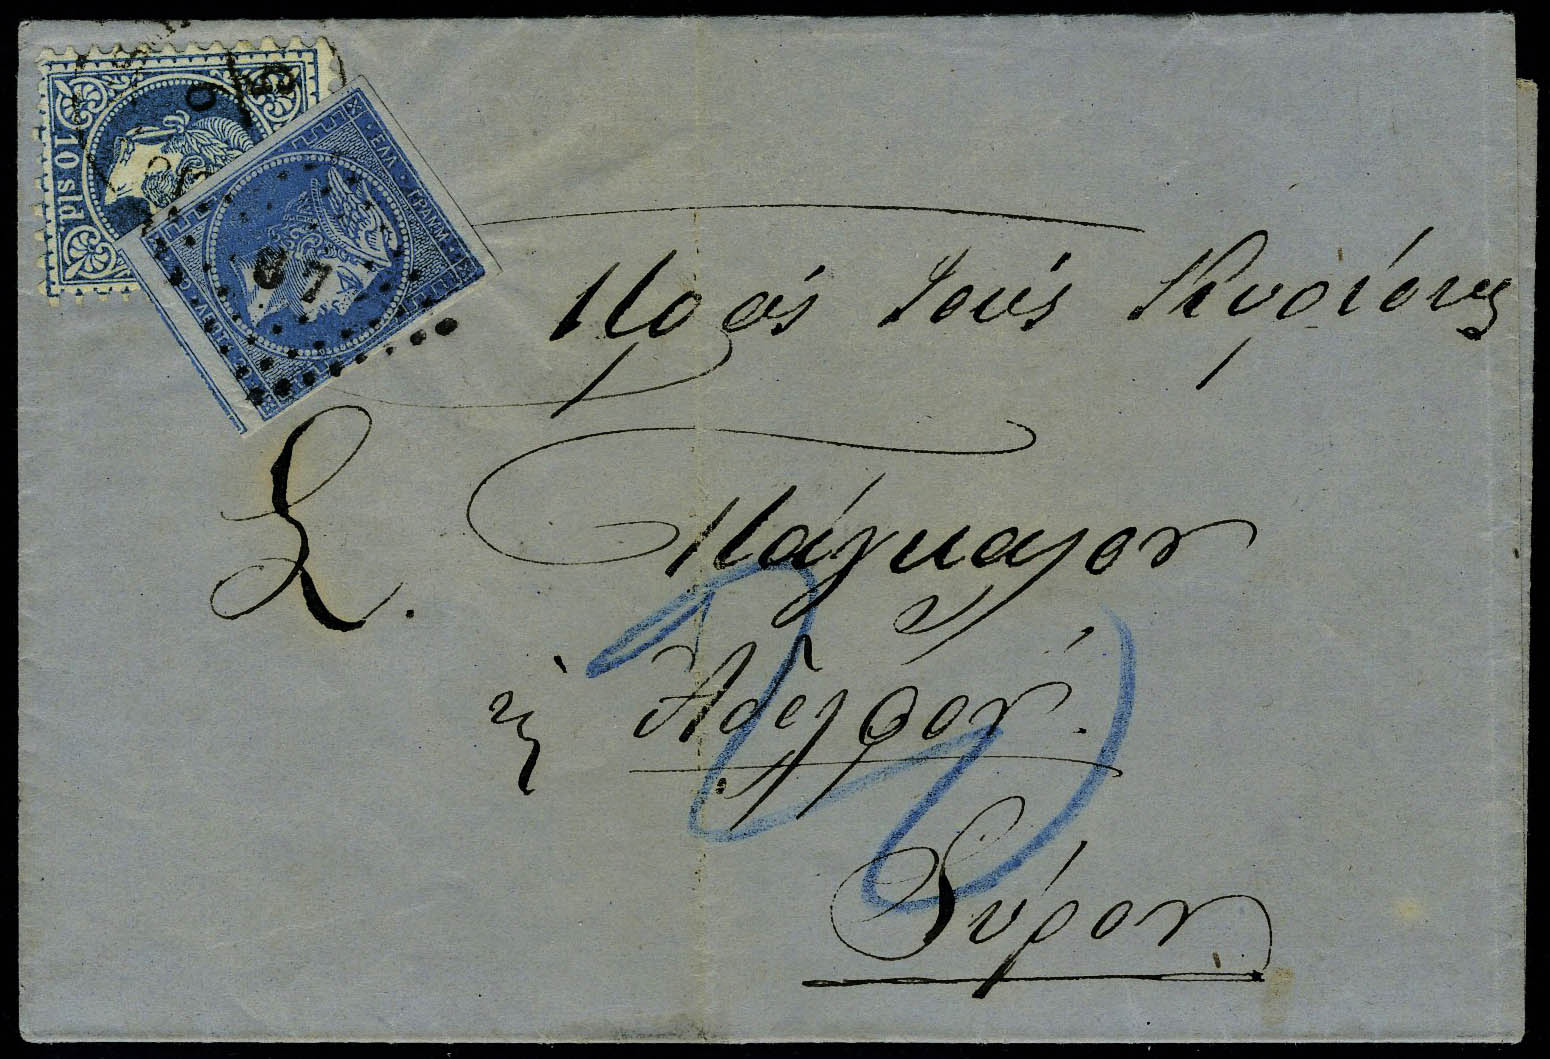 10 sld
ΕΛΛ ΓΡΑΜΜ
67
Πρὸς τοὺς Κυρίους
Σ.
Μάγκαλον
ἢ Ἀδελφὸν
Σύρον